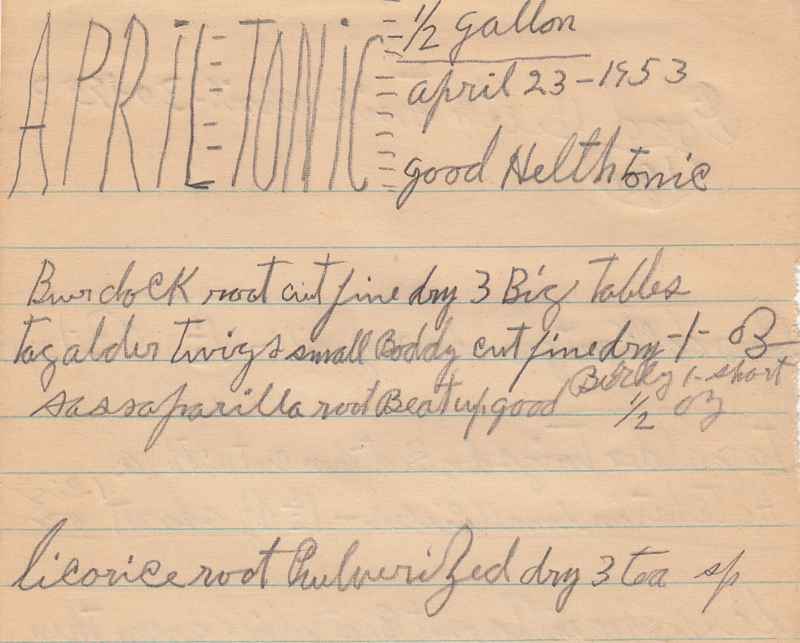 APRIL TONIC
1/2 gallon
april 23-1953
good Helth tonic
Burdock root cut fine dry 3 Big Tables
tagalder twigs small Boddy cut fine dry -1- oz
sassaparilla root Beat up good 1/2 oz
1-short
licorice root Pulverized dry 3 tea sp